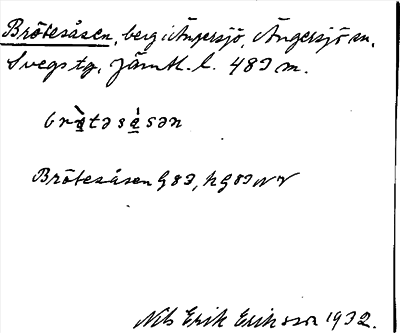 Brötesåsen, berg i Ängersjö, Ängersjö sn,
Svegs tg, Jämtl. l. 483 m.
Brötesåsen G83, hG83NV
Nils Erik Eriksson 1932.